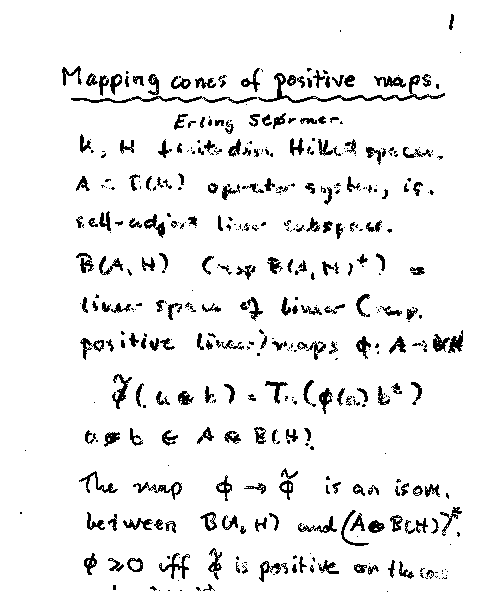 1
Mapping cones of positive maps.
Erling Størmer.
K, H finite dim. Hilbert spaces.
A ⊂ B(K) operator system, i.e.
self-adjoint linear subspace.
B(A, H) (resp B(A, H)⁺) =
linear space of linear (resp.
positive linear) maps φ: A →
φ̃(a⊗b) = Tr(φ(a) bᵗ)
a⊗b ∈ A ⊗ B(H).
The map φ → φ̃ is an isom.
between B(A, H) and (A⊗B(H))*.
φ ≥ 0 iff φ̃ is positive on the cone